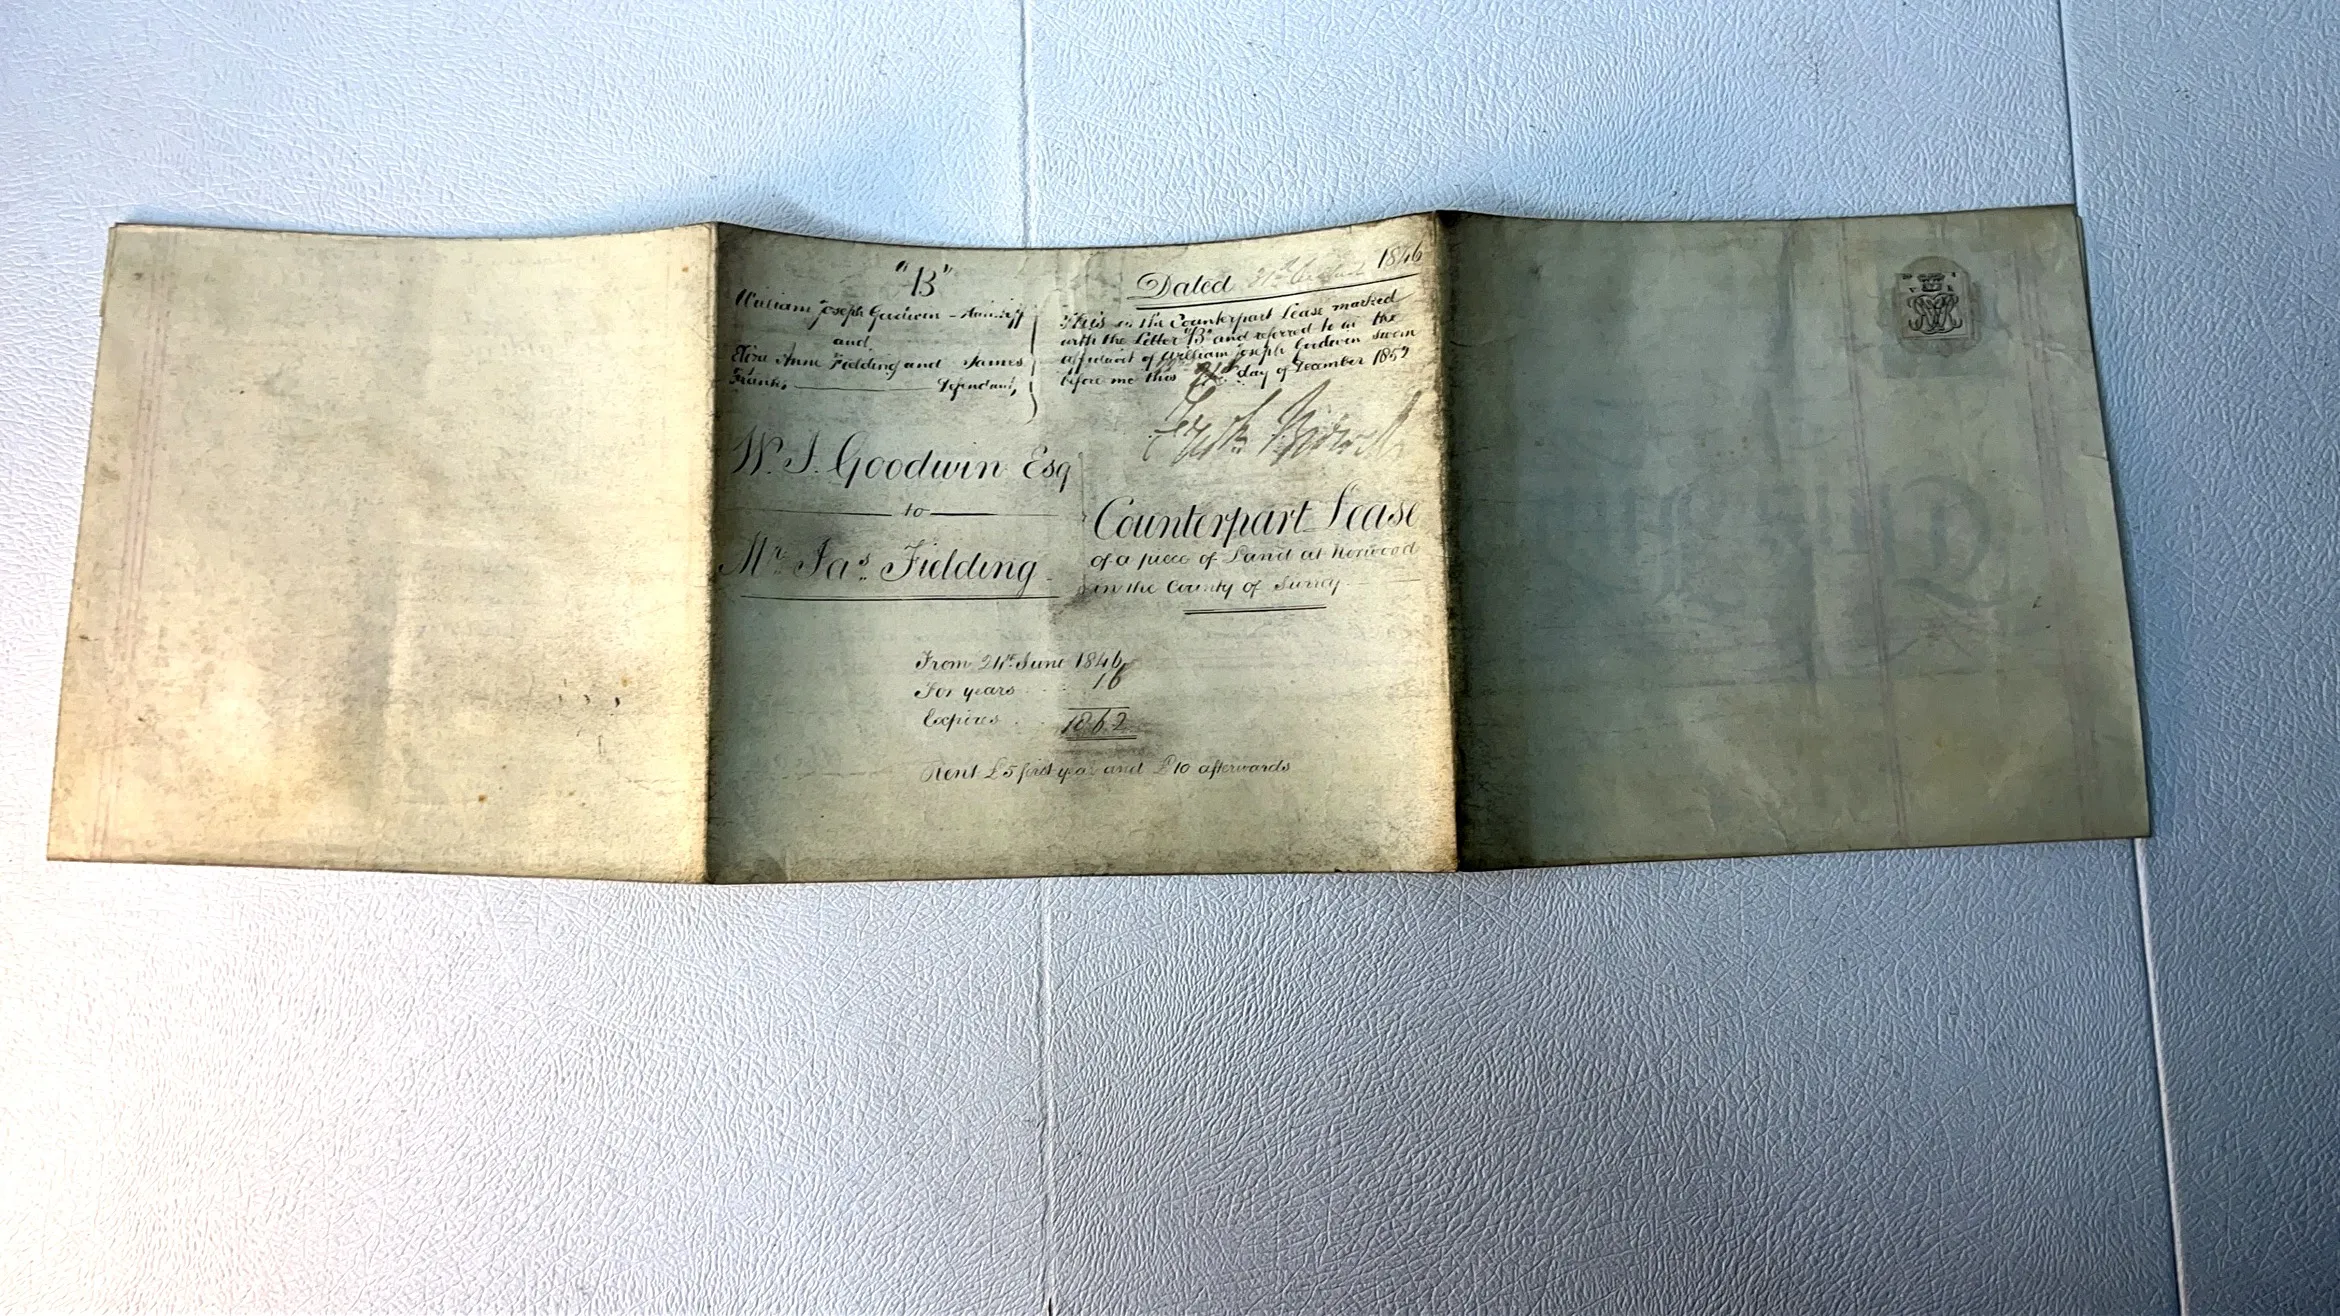 "B"
William Joseph Goodwin - Plaintiff
and
Eliza Anne Fielding and James
Franks Defendants
Dated 21st 1846
This is the Counterpart Lease marked
with the Letter "B" and referred to in the
affidavit of William Joseph Goodwin sworn
before me this day of December 1859
W. J. Goodwin Esq
to
Mr. Jas. Fielding
Counterpart Lease
of a piece of Land at Norwood
in the County of Surrey
From 24th June 1846
For years 16
Expires 1862
Rent £5 first year and £10 afterwards
V R